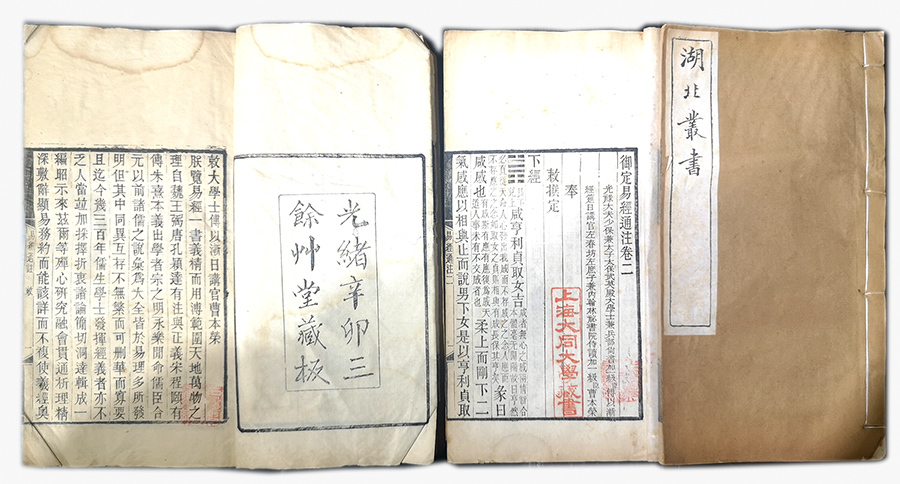 湖北叢書
御定易經通注卷二
光祿大夫少保兼太子太保武英殿大學士兼兵部尚書加一級傅以漸
經筵日講官左春坊左庶子兼內翰林秘書院侍讀加一級曹本榮
奉
敕撰定
下經
咸亨利貞取女吉
彖曰
咸感也
柔上而剛下二
氣感應以相與止而說男下女是以亨利貞取
上海大同大學藏書
光緒辛卯三
餘艸堂藏板
敕大學士傅以漸日講官曹本榮
朕覽易經一書義精而用溥範圍天地萬物之
理自魏王弼唐孔穎達有注與正義宋程頤有
傳朱熹本義出學者宗之明永樂間命儒臣合
元以前諸儒之說彙為大全皆於易理多所發
明但其中同異互存不無繁而可刪華而寡要
且迄今幾三百年儒生學士發揮經義者亦不
乏人當並加採擇折衷諸論簡切洞達輯成一
編昭示來茲爾等殫心研究融會貫通析理精
深敷辭顯易務約而能該詳而不複使羲經奧